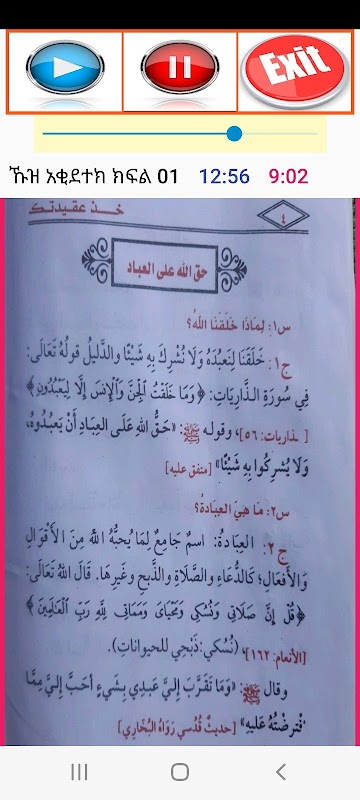 Exit
ኹዝ አቂደተክ ክፍል 01 12:56 9:02
خذ عقيدتك ٤
حق الله على العباد
س١: لِمَاذَا خَلَقَنَا اللهُ؟
ج١: خَلَقَنَا لِنَعْبُدَهُ وَلَا نُشْرِكَ بِهِ شَيْئًا والدَّلِيلُ قولُهُ تَعَالَى:
فِي سُورَةِ الذَّارِيَاتِ: ﴿وَمَا خَلَقْتُ الْجِنَّ وَالْإِنسَ إِلَّا لِيَعْبُدُونِ﴾
[ـذاريات: ٥٦]، وقوله ﷺ: «حَقُّ اللهِ عَلَى العِبَادِ أَنْ يَعْبُدُوهُ،
وَلَا يُشْرِكُوا بِهِ شَيْئًا» [متفق عليه]
س٢: مَا هِيَ العِبَادَةُ؟
ج٢. العِبَادَةُ: اسمٌ جَامِعٌ لِمَا يُحِبُّهُ اللهُ مِنَ الأَقْوَالِ
وَالأَفعَالِ؛ كالدُّعَاءِ والصَّلَاةِ والذَّبحِ وغَيرِهَا. قَالَ اللهُ تَعَالَى:
﴿قُلْ إِنَّ صَلَاتِي وَنُسُكِي وَمَحْيَايَ وَمَمَاتِي لِلَّهِ رَبِّ الْعَالَمِينَ﴾
[الأنعام: ١٦٢]، (نُسُكي: ذَبْحِي للحيواناتِ).
وقال ﷺ: «وَمَا تَقَرَّبَ إِليَّ عبدِي بِشَيءٍ أحَبَّ إليَّ مِمَّا
فْتَرضْتُهُ عَلَيهِ» [حديثٌ قُدُسي رَوَاهُ البُخَاري]